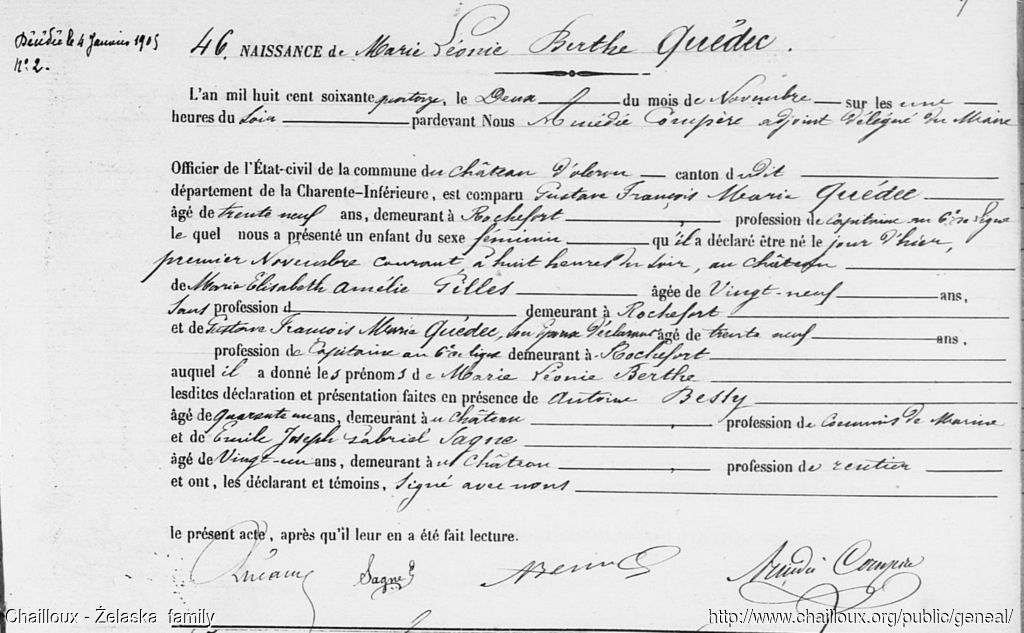 Décédée le 4 Janvier 1905
N° 2.
46. NAISSANCE de Marie Léonie Berthe Quédec.
L'an mil huit cent soixante quatorze, le Deux du mois de Novembre sur les une
heures du Soir pardevant Nous Amédée Compère adjoint délégué du Maire
Officier de l'État-civil de la commune du Château d'oleron canton dudit
département de la Charente-Inférieure, est comparu Gustave François Marie Quédec
âgé de trente neuf ans, demeurant à Rochefort profession de Capitaine au 6e de ligne
le quel nous a présenté un enfant du sexe féminin qu'il a déclaré être né le jour d'hier,
premier Novembre courant, à huit heures du soir, au Château
de Marie Elisabeth Amélie Gilles âgée de Vingt-neuf ans,
Sans profession d demeurant à Rochefort
et de Gustave François Marie Quédec, déclarant âgé de trente neuf ans,
profession de Capitaine au 6e de ligne demeurant à Rochefort
auquel il a donné les prénoms de Marie Léonie Berthe
lesdites déclaration et présentation faites en présence de Antoine Bessy
âgé de quarante un ans, demeurant au Château profession de Commis de Marine
et de Emile Joseph Gabriel Sagne
âgé de Vingt-un ans, demeurant au Château profession de rentier
et ont, les déclarant et témoins, Signé avec nous
le présent acte, après qu'il leur en a été fait lecture.
Sagne Amédée Compère
Chailloux - Żelaska family
http://www.chailloux.org/public/geneal/